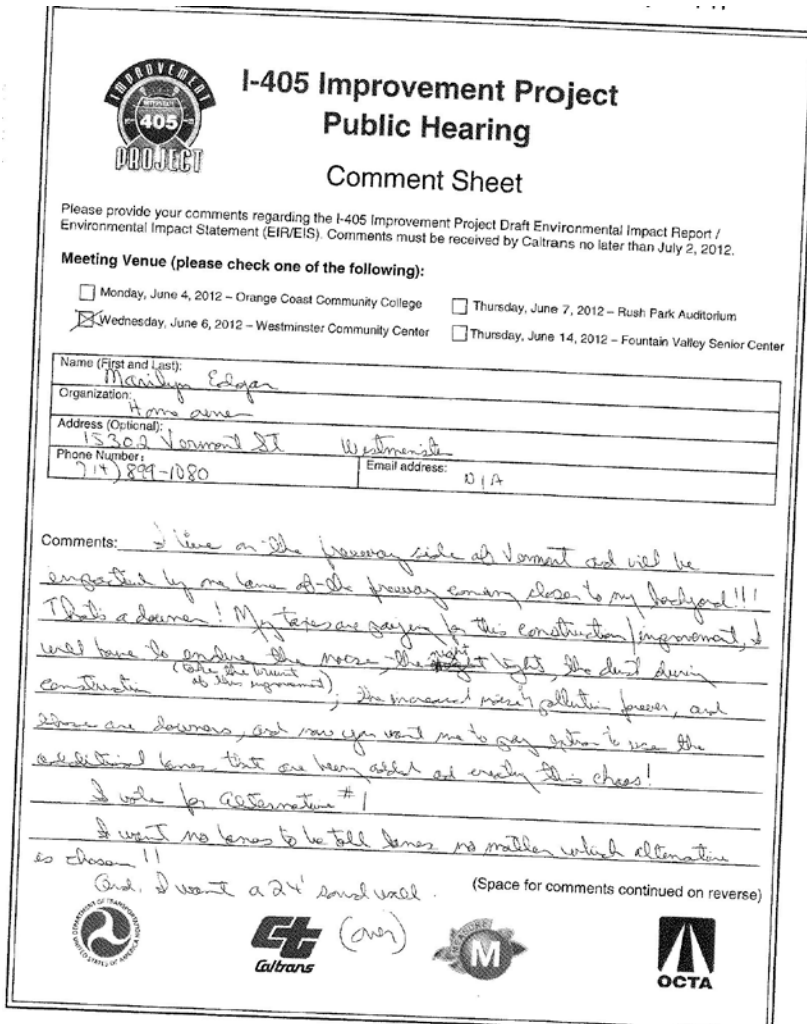 IMPROVEMENT
INTERSTATE
405
PROJECT
I-405 Improvement Project
Public Hearing
Comment Sheet
Please provide your comments regarding the I-405 Improvement Project Draft Environmental Impact Report /
Environmental Impact Statement (EIR/EIS). Comments must be received by Caltrans no later than July 2, 2012.
Meeting Venue (please check one of the following):
Monday, June 4, 2012 – Orange Coast Community College
Thursday, June 7, 2012 – Rush Park Auditorium
Wednesday, June 6, 2012 – Westminster Community Center
Thursday, June 14, 2012 – Fountain Valley Senior Center
Name (First and Last):
Marilyn Edgar
Organization:
Home owner
Address (Optional):
15302 Vermont St Westminster
Phone Number:
714) 899-1080
Email address:
N/A
Comments: I live on the freeway side of Vermont and will be
impacted by one lane of the freeway coming closer to my backyard!!!
That's a downer! My taxes are paying for this construction/improvement, I
will have to endure the noise, the night light, the dust during
construction (take the brunt of this improvement), the increased noise & pollution forever, and
those are downers, and now you want me to pay extra to use the
additional lanes that are being added and creating this chaos!
I vote for Alternative #1
I want no lanes to be toll lanes no matter which alternative
is chosen!!
And, I want a 24' sound wall.
(Space for comments continued on reverse)
(over)
DEPARTMENT OF TRANSPORTATION
UNITED STATES OF AMERICA
Caltrans
MEASURE
M
OCTA